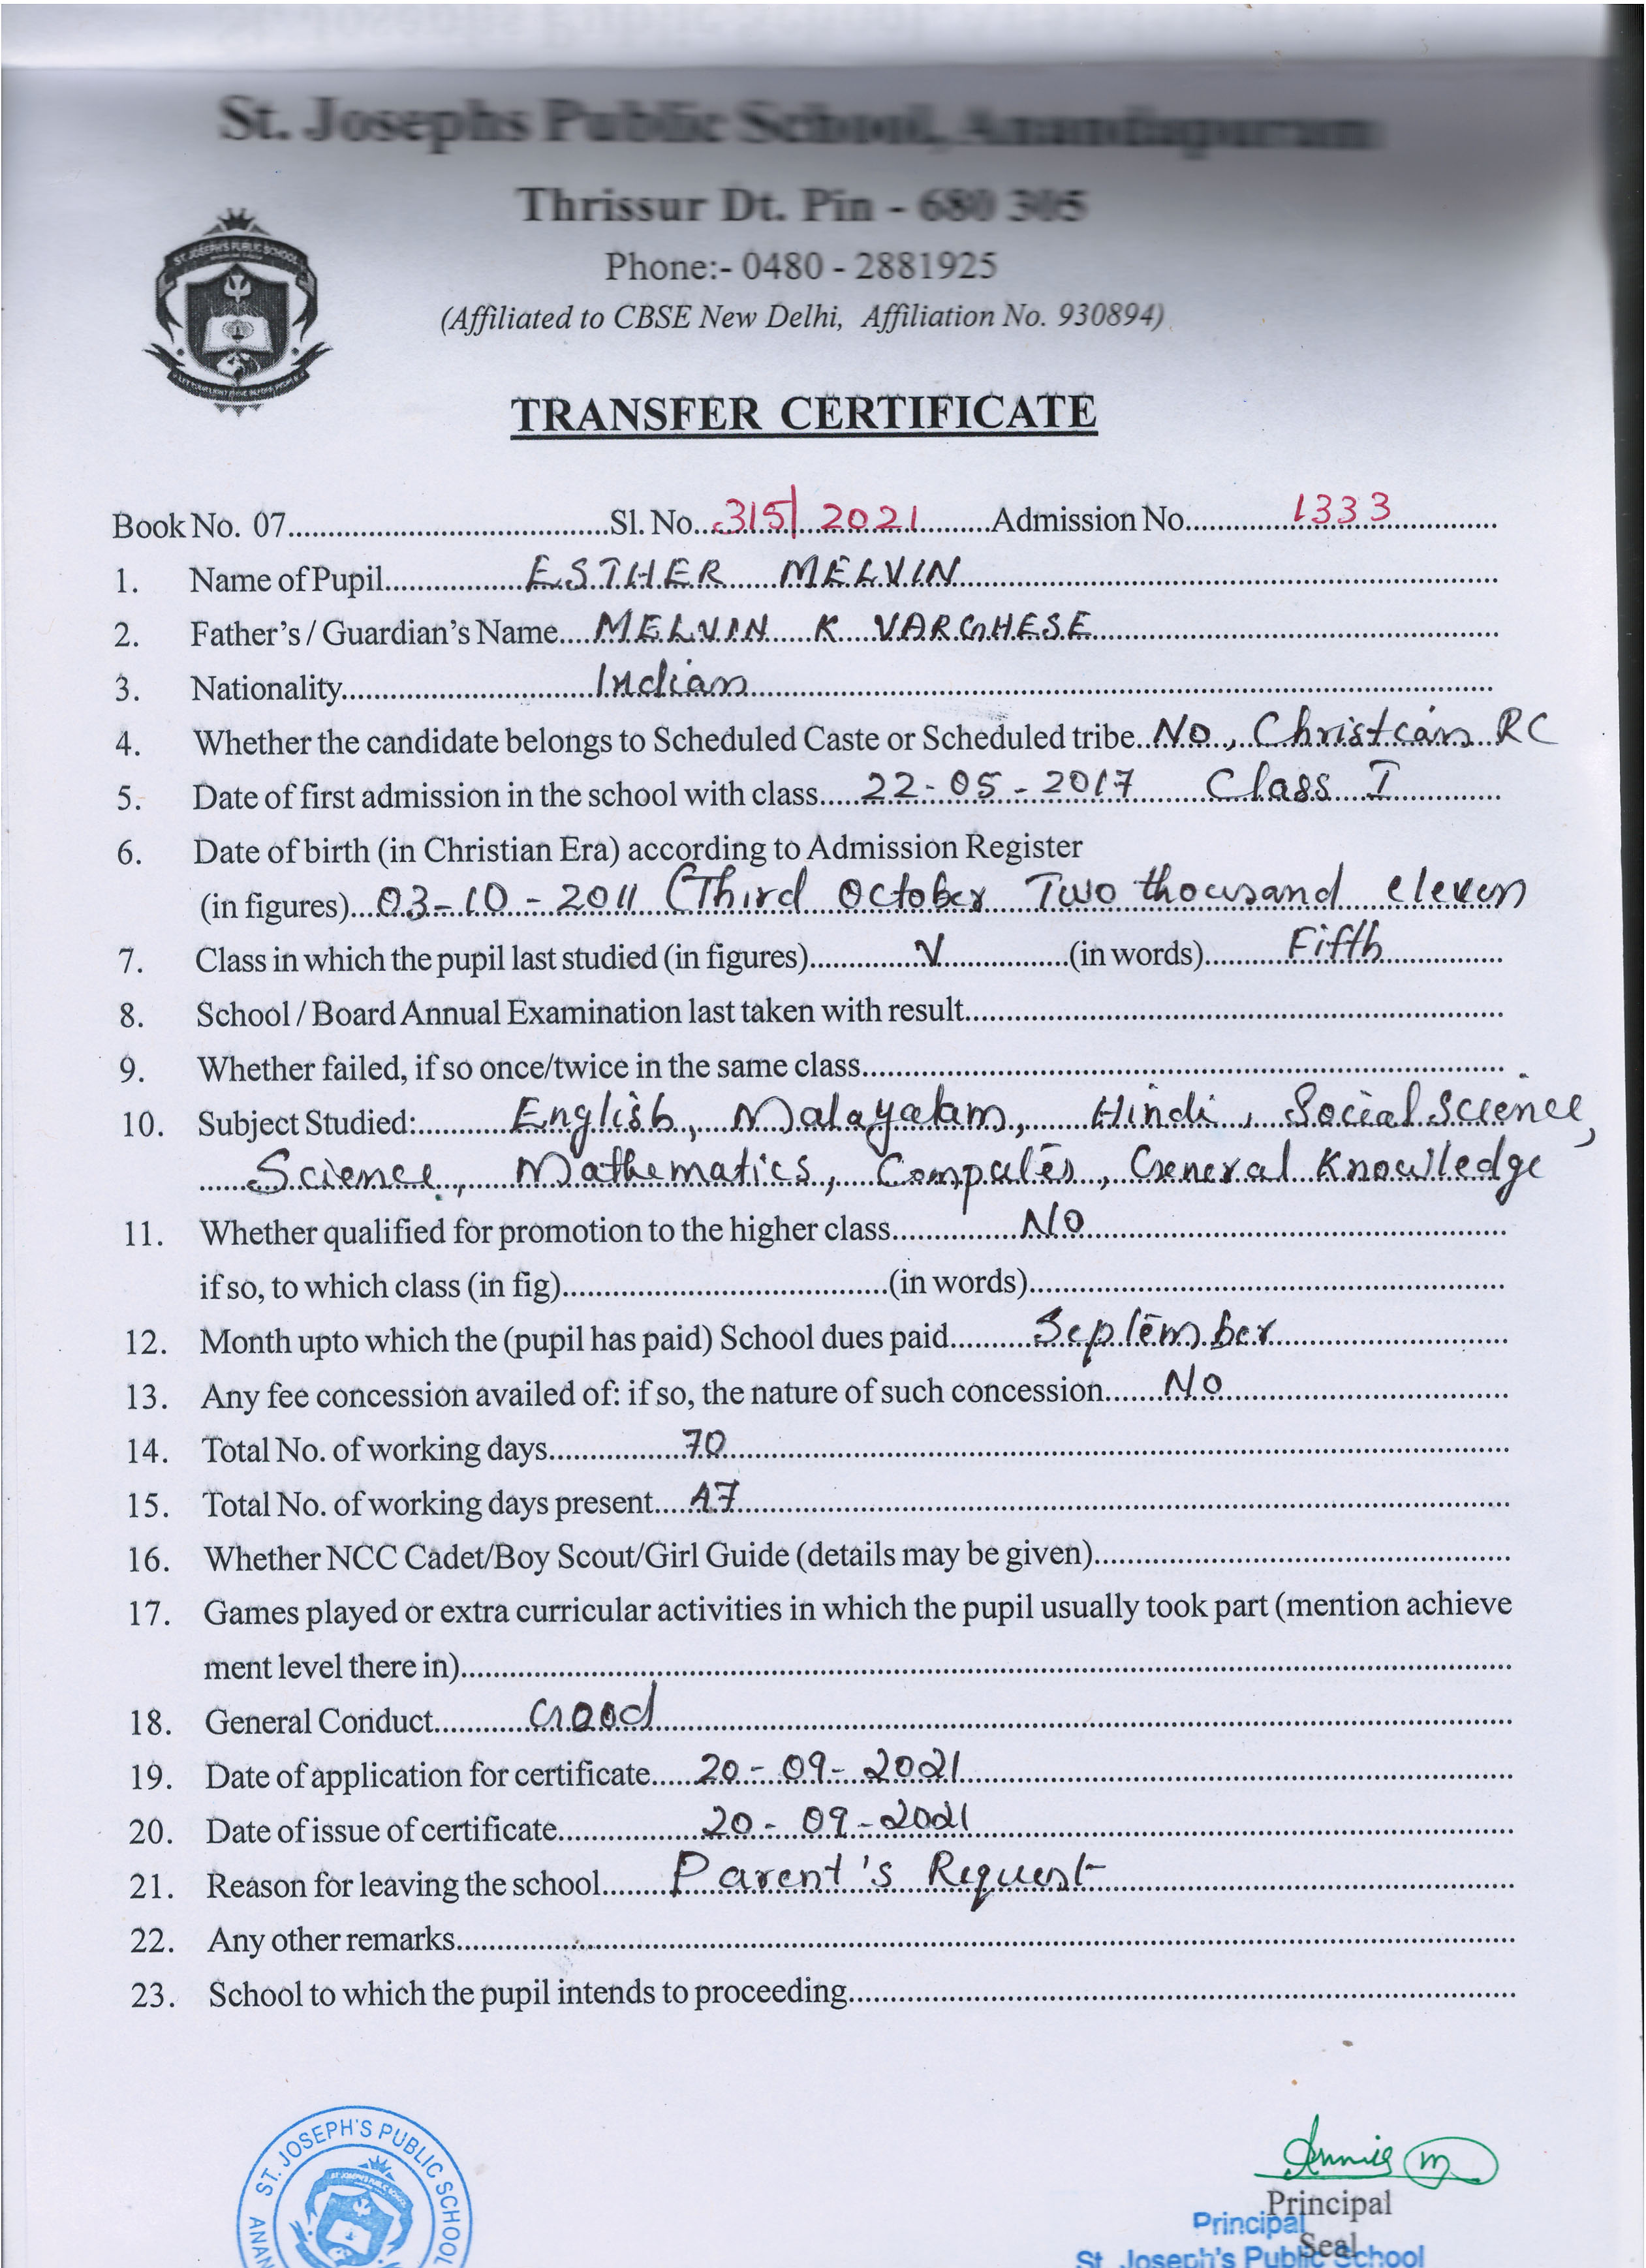 St. Josephs Public School, Anandapuram
Thrissur Dt. Pin - 680 305
Phone:- 0480 - 2881925
(Affiliated to CBSE New Delhi, Affiliation No. 930894)
ST. JOSEPH'S PUBLIC SCHOOL
TRANSFER CERTIFICATE
Book No. 07 Sl. No. 315/2021 Admission No. 1333
1. Name of Pupil ESTHER MELVIN
2. Father's / Guardian's Name MELVIN K VARGHESE
3. Nationality Indian
4. Whether the candidate belongs to Scheduled Caste or Scheduled tribe No, Christian RC
5. Date of first admission in the school with class 22-05-2017 Class I
6. Date of birth (in Christian Era) according to Admission Register
(in figures) 03-10-2011 (Third October Two thousand eleven
7. Class in which the pupil last studied (in figures) V (in words) Fifth
8. School / Board Annual Examination last taken with result
9. Whether failed, if so once/twice in the same class
10. Subject Studied: English, Malayalam, Hindi, Social Science,
Science, Mathematics, Computer, General Knowledge
11. Whether qualified for promotion to the higher class No
if so, to which class (in fig) (in words)
12. Month upto which the (pupil has paid) School dues paid September
13. Any fee concession availed of: if so, the nature of such concession No
14. Total No. of working days 70
15. Total No. of working days present 47
16. Whether NCC Cadet/Boy Scout/Girl Guide (details may be given)
17. Games played or extra curricular activities in which the pupil usually took part (mention achieve
ment level there in)
18. General Conduct Good
19. Date of application for certificate 20-09-2021
20. Date of issue of certificate 20-09-2021
21. Reason for leaving the school Parent's Request
22. Any other remarks
23. School to which the pupil intends to proceeding
ST. JOSEPH'S PUBLIC SCHOOL
Principal
Principal
Seal
St. Joseph's Public School